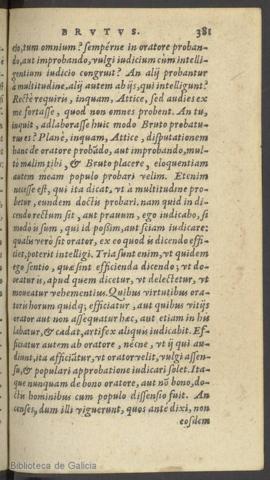 BRVTVS. 381
cto, tum omnium? sempérne in oratore proban-
do, aut improbando, vulgi iudicium cum intelli-
gentium iudicio congruit? An alij probantur
à multitudine, alij autem ab ijs, qui intelligunt?
Rectè requiris, inquam, Attice, sed audies ex
me fortasse, quod non omnes probent. An tu,
inquit, adlaborasse huic modo Bruto probatu-
rus es? Planè, inquam, Attice, disputationem
hanc de oratore probādo, aut improbando, mul-
tò malim tibi, & Bruto placere, eloquentiam
autem meam populo probari velim. Etenim
necesse est, qui ita dicat, vt à multitudine pro-
betur, eundem doctis probari. nam quid in di-
cendo rectum sit, aut prauum, ego iudicabo, si
modò is sum, qui id possim, aut sciam iudicare:
qualis verò sit orator, ex eo quod is dicendo effi-
ciet, poterit intelligi. Tria sunt enim, vt quidem
ego sentio, quæ sint efficienda dicendo; vt do-
ceatur is, apud quem dicetur, vt delectetur, vt
moueatur vehementius. Quibus virtutibus ora-
toris horum quidq; efficiatur, aut quibus vitijs
orator aut non assequatur hæc, aut etiam in his
labatur, & cadat, artifex aliquis iudicabit. Ef-
ficiatur autem ab oratore, nécne, vt ij qui au-
diunt, ita afficiātur, vt orator velit, vulgi assen-
su, & populari approbatione iudicari solet. Ita-
que nunquam de bono oratore, aut nō bono, do-
ctis hominibus cum populo dissensio fuit. An
censes, dum illi viguerunt, quos antè dixi, non
eosdem
Biblioteca de Galicia